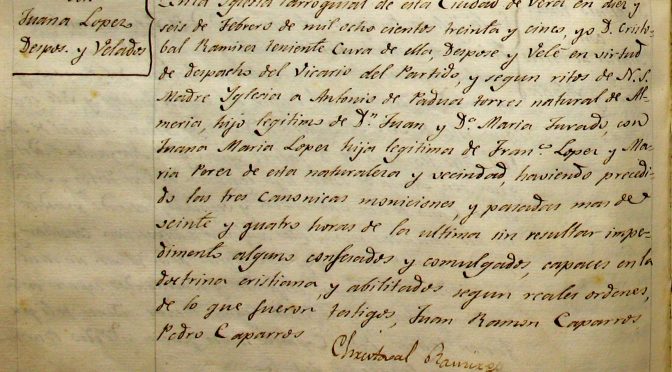 con
Juana Lopez
Despos. y Velados
En la Yglesia Parroquial de esta Ciudad de Vera en diez y
seis de Febrero de mil ocho cientos treinta y cinco, yo D. Cristo-
bal Ramirez teniente Cura de ella, Despose y Velé en virtud
de despacho del Vicario del Partido, y segun ritos de N. S.
Madre Yglesia a Antonio de Padua torres natural de Al-
meria, hijo legitimo de Dn. Juan y Da. Maria Jurado, con
Juana Maria Lopez hija legitima de Franco. Lopez y Ma-
ria Perez de esta naturaleza y vecindad, haviendo precedi-
do las tres Canonicas moniciones, y pasadas mas de
veinte y quatro horas de la ultima sin resultar impe-
dimento alguno confesados y comulgados, capaces en la
doctrina cristiana, y abilitados segun reales ordenes,
de lo que fueron testigos, Juan Ramon Caparros
Pedro Caparros
Christobal Ramirez